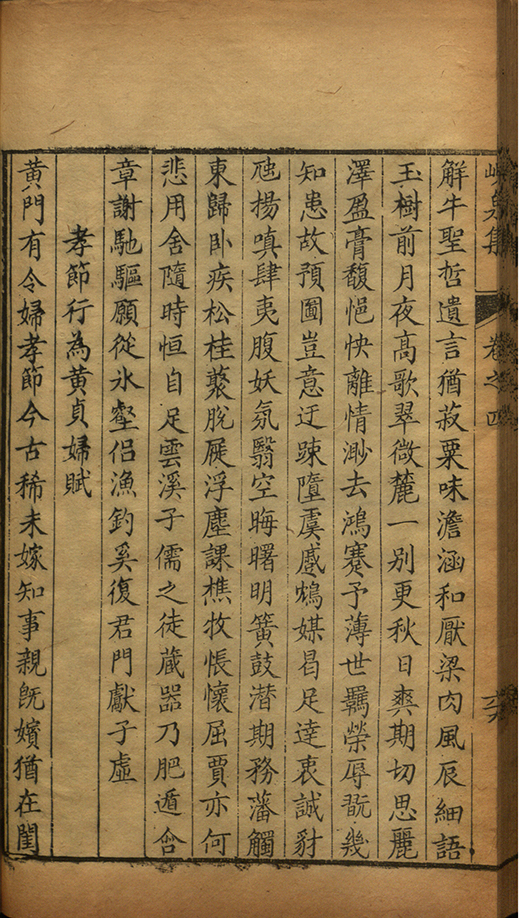 峴泉集
卷之四
解牛聖哲遺言猶菽粟味澹涵和厭梁肉風辰細語
玉樹前月夜高歌翠微麓一别更秋日爽期切思麗
澤盈膏馥悒怏離情渺去鴻蹇予薄世羈榮辱翫幾
知患故預圖豈意迂踈墮虞慼鴆媒曷足達衷誠豺
虺揚嗔肆夷腹妖氛翳空晦曙明簧鼓潜期務藩觸
東歸卧疾松桂藂脫屣浮塵課樵牧悵懷屈賈亦何
悲用舍隨時恒自足雲溪子儒之徒藏器乃肥遁含
章謝馳驅願從氷壑侣漁釣奚復君門獻子虛
孝節行為黄貞婦賦
黄門有令婦孝節今古稀未嫁知事親既嬪猶在閨